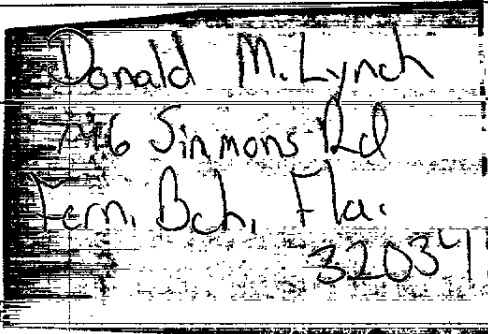 Donald M. Lynch
Sinmons Rd
Fern. Bch, Fla.
32034